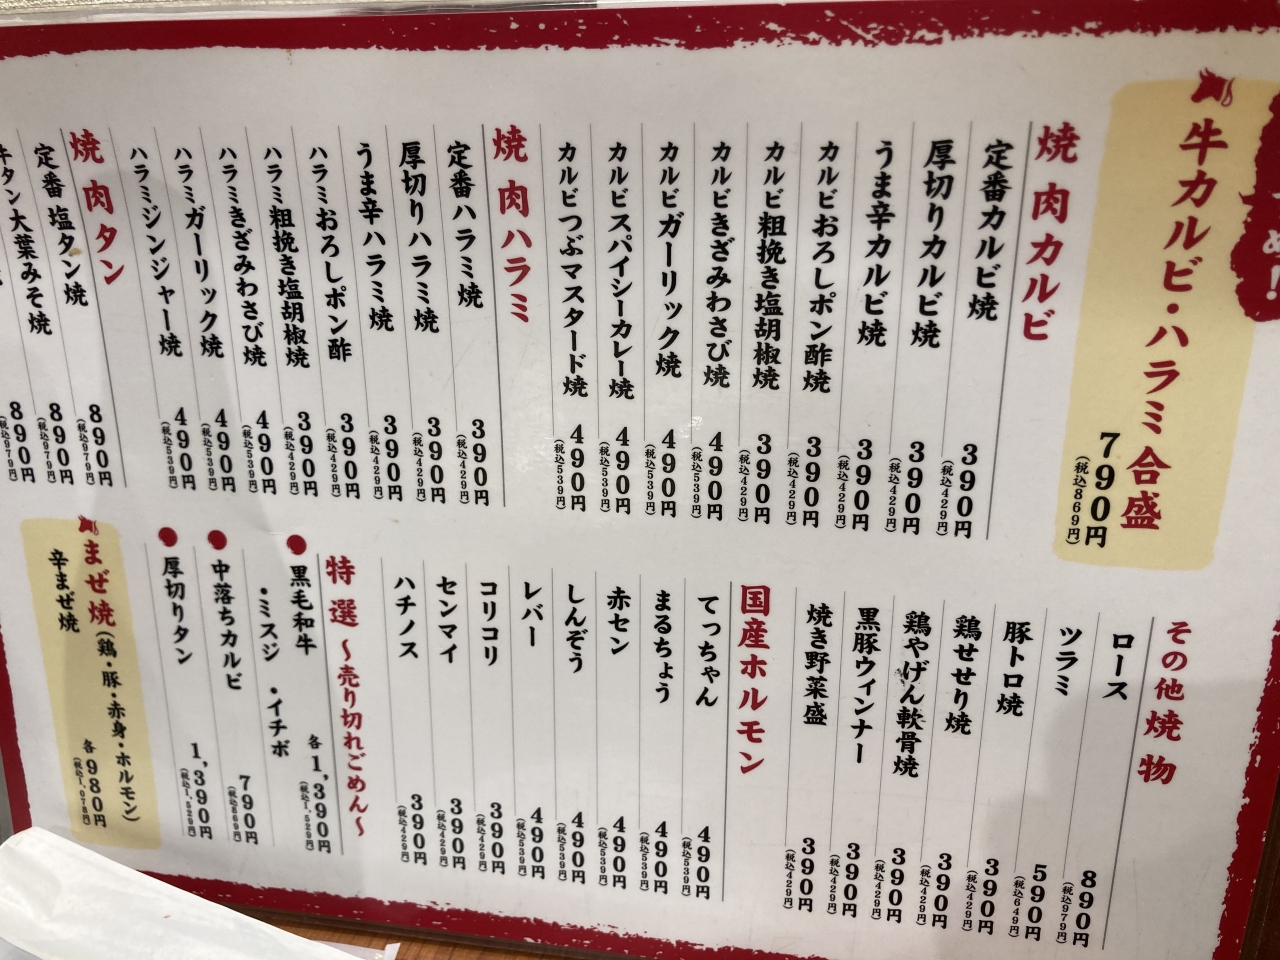 め!
牛カルビ・ハラミ合盛
790円
(税込869円)
焼肉カルビ
定番カルビ焼 390円 (税込429円)
厚切りカルビ焼 390円 (税込429円)
うま辛カルビ焼 390円 (税込429円)
カルビおろしポン酢焼 390円 (税込429円)
カルビ粗挽き塩胡椒焼 390円 (税込429円)
カルビきざみわさび焼 490円 (税込539円)
カルビガーリック焼 490円 (税込539円)
カルビスパイシーカレー焼 490円 (税込539円)
カルビつぶマスタード焼 490円 (税込539円)
焼肉ハラミ
定番ハラミ焼 390円 (税込429円)
厚切りハラミ焼 390円 (税込429円)
うま辛ハラミ焼 390円 (税込429円)
ハラミおろしポン酢 390円 (税込429円)
ハラミ粗挽き塩胡椒焼 390円 (税込429円)
ハラミきざみわさび焼 490円 (税込539円)
ハラミガーリック焼 490円 (税込539円)
ハラミジンジャー焼 490円 (税込539円)
焼肉タン
定番 塩タン焼 890円 (税込979円)
牛タン大葉みそ焼 890円 (税込979円)
890円 (税込979円)
その他焼物
ロース 890円 (税込979円)
ツラミ 590円 (税込649円)
豚トロ焼 390円 (税込429円)
鶏せせり焼 390円 (税込429円)
鶏やげん軟骨焼 390円 (税込429円)
黒豚ウィンナー 390円 (税込429円)
焼き野菜盛 390円 (税込429円)
国産ホルモン
てっちゃん 490円 (税込539円)
まるちょう 490円 (税込539円)
赤セン 490円 (税込539円)
しんぞう 490円 (税込539円)
レバー 490円 (税込539円)
コリコリ 390円 (税込429円)
センマイ 390円 (税込429円)
ハチノス 390円 (税込429円)
特選 〜売り切れごめん〜
黒毛和牛 各1,390円 (税込1,529円)
・ミスジ ・イチボ
中落ちカルビ 790円 (税込869円)
厚切りタン 1,390円 (税込1,529円)
まぜ焼(鶏・豚・赤身・ホルモン)
辛まぜ焼 各980円 (税込1,078円)